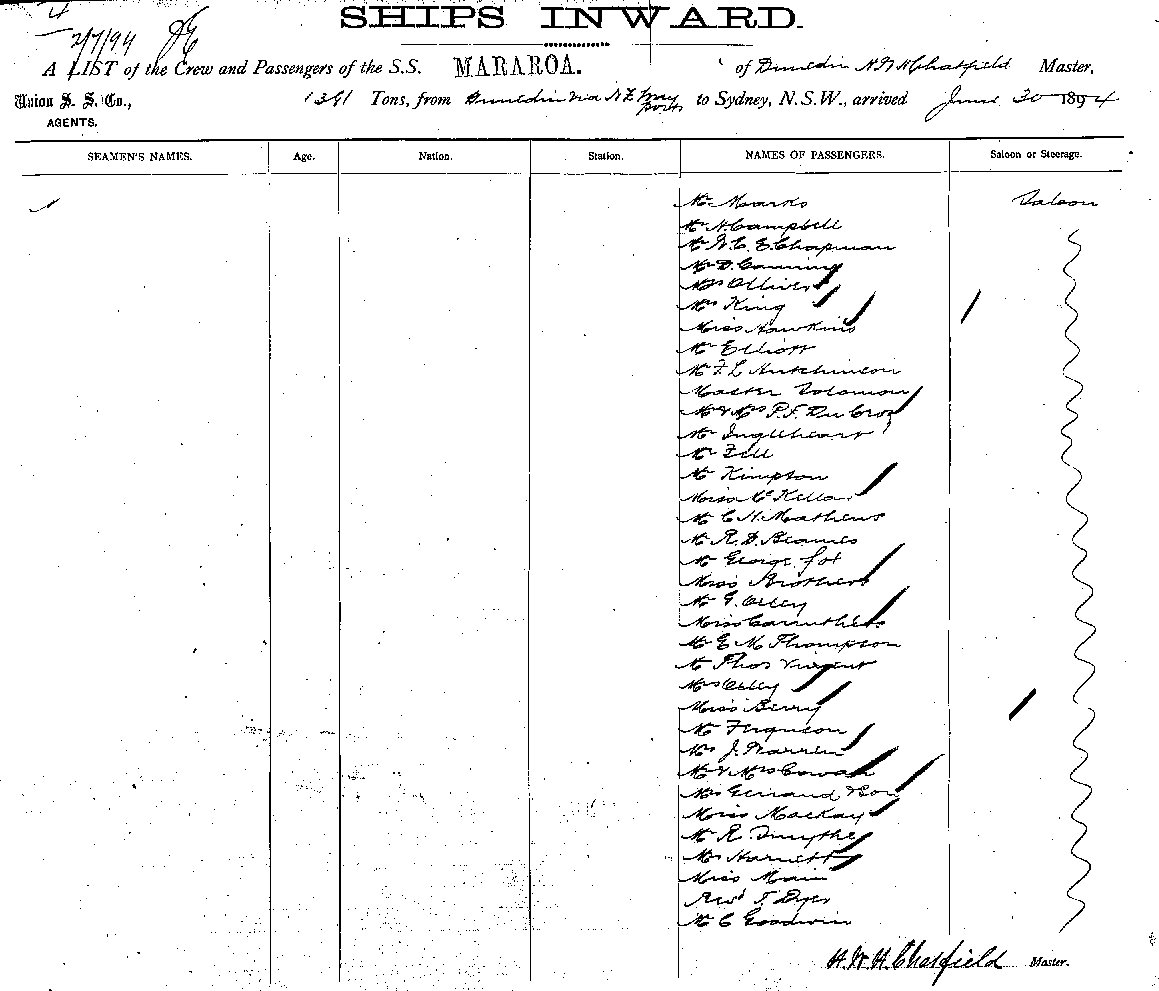 SHIPS INWARD.
2/7/94
A LIST of the Crew and Passengers of the S.S. MARAROA. of Dunedin H.W.H. Chatfield Master,
Union S. S. Co., 1381 Tons, from Dunedin via N.Z. way ports to Sydney, N.S.W., arrived June 30 1894
AGENTS.
SEAMEN'S NAMES. Age. Nation. Station. NAMES OF PASSENGERS. Saloon or Steerage.
Mr Marks Saloon
Mr N. Campbell
Mr W. C. E. Chapman
Mr D. Canning
Mrs Ollivier
Mrs King
Miss Hawkins
Mr Elliott
Mr F. L. Hutchinson
Master Solomon
Mr & Mrs P. F. Du Croz
Mr Ingleheart
Mr Fell
Mr Kimpton
Miss McKellar
Mr C. H. Mathews
Mr R. D. Beames
Mr George
Miss Brothers
Mr G. Olley
Miss Carruthers
Mr E. M. Thompson
Mr Thos Vincent
Mrs Olley
Miss Berry
Mr Ferguson
Mrs J. Warren
Mr & Mrs Cowan
Mrs Girraud & Son
Miss Mackay
Mr R. Smythe
Mrs Harnett
Miss Main
Revd T. Dyer
Mr C Goodwin
H.W.H. Chatfield Master.